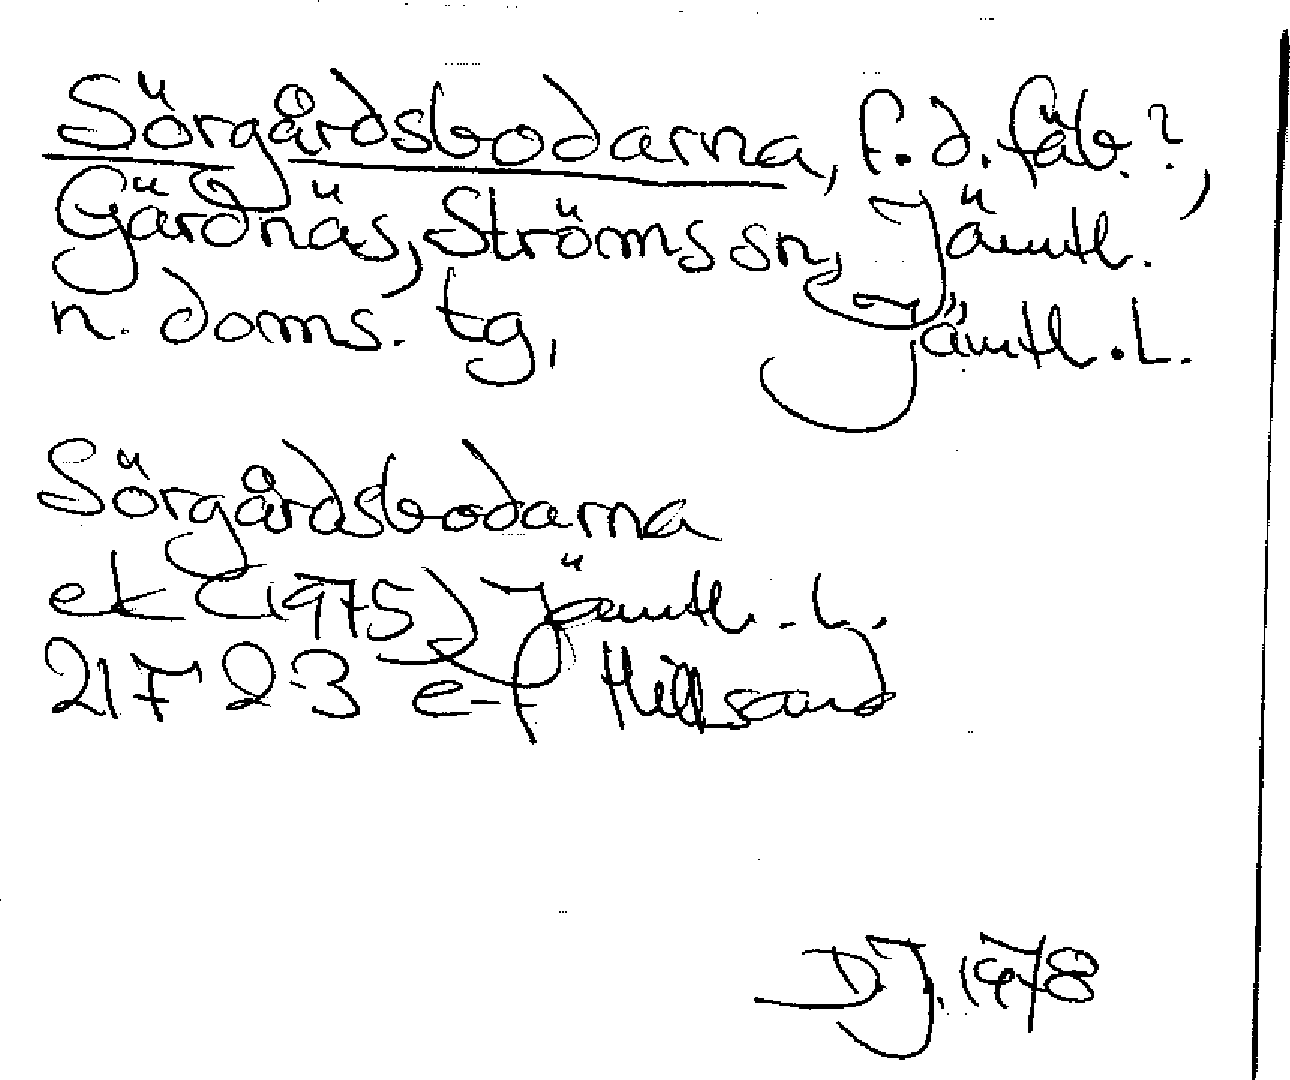 Sörgårdsbodarna, f.d. fäb.?,
Gärdnäs, Ströms sn, Jämtl.
n. doms. tg, Jämtl. L.
Sörgårdsbodarna
ek (1975) Jämtl. L.
21F 2-3 e-f Hillsand
DJ. 1978